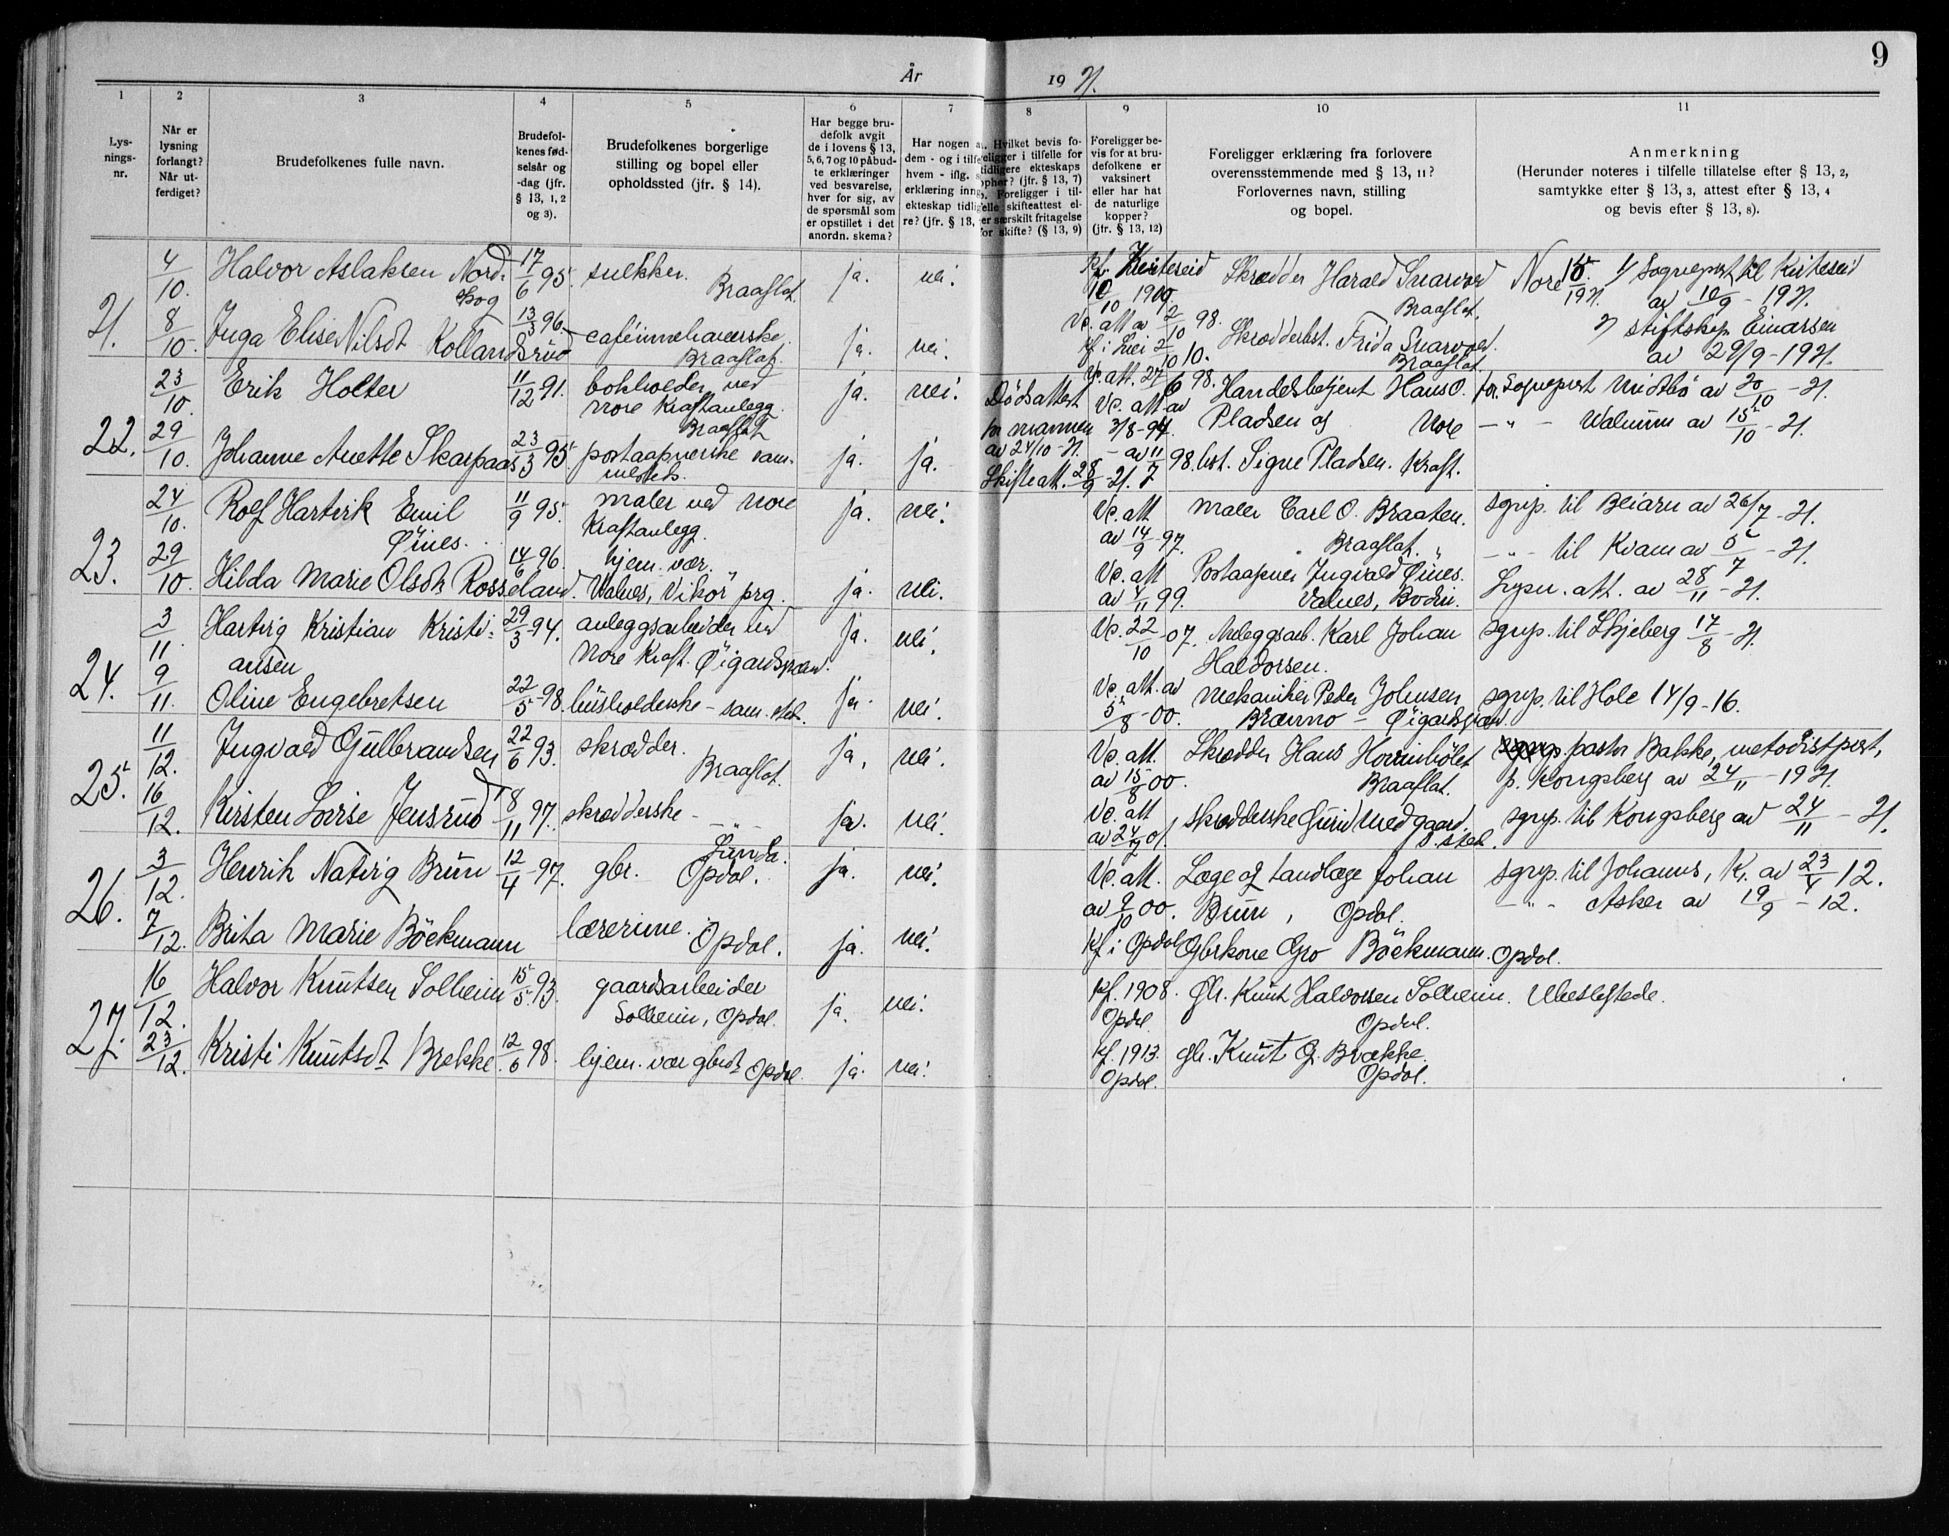 År 1921.
9
1 2 3 4 5 6 7 8 9 10 11
Lys-
nings-
nr.
Når er
lysning
forlangt?
Når ut-
ferdiget?
Brudefolkenes fulle navn.
Brudefol-
kenes fød-
selsår og
-dag (jfr.
§ 13, 1, 2
og 3).
Brudefolkenes borgerlige
stilling og bopel eller
opholdssted (jfr. § 14).
Har begge bru-
defolk avgit
de i lovens § 13,
5, 6, 7 og 10 påbud-
te erklæringer
ved besvarelse,
hver for sig, av
de spørsmål som
er opstillet i det
anordn. skema?
Har nogen a
dem - og i tilfe
hvem - iflg. s
erklæring inng
ekteskap tidlig
re? (jfr. § 13,
Hvilket bevis fo-
religger i tilfelle for
tidligere ekteskaps
ophør? (jfr. § 13, 7)
b. Foreligger i til-
felle skifteattest el-
ler særskilt fritagelse
for skifte? (§ 13, 9)
Foreligger be-
vis for at bru-
defolkene er
vaksinert
eller har hat
de naturlige
kopper?
(jfr. § 13, 12)
Foreligger erklæring fra forlovere
overensstemmende med § 13, 11?
Forlovernes navn, stilling
og bopel.
Anmerkning
(Herunder noteres i tilfelle tillatelse efter § 13, 2,
samtykke efter § 13, 3, attest efter § 13, 4
og bevis efter § 13, 8).
21. 4/10 Halvor Aslaksen Nord- 17/6 95. snekker. ja. nei. Kf. Kviteseid Skrædder Harald Snarvold Nore 1) Sogneprest til Kviteseid
skog Braaflat. 10/10 1909 Braaflat. av 10/9 - 1921.
8/10 Inga Elise Nilsdt Kollandsrud 13/3 96. caféinnehaverske. ja. nei. Vc. att av 2/10 98. Skrædderbst. Frida Snarvold. 2) stiftskap Einarsen
Braaflat. Kf. i 2/10 10. Braaflat. av 29/9 - 1921.
22. 23/10 Erik Holter 11/12 91. bokholder ved ja. nei. Dødsattest Vc. att. 27/6 98. Handelsbetjent Hans O. fra Sogneprest Midtbö av 20/10 - 21.
Nore Kraftanlegg. for mannen Vc. att av 3/8 - 94. Pladsen og Nore - " - Walnum av 15/10 - 21.
Braaflat av 24/10 - 21.
29/10 Johanne Anette Skarpaas 23/3 95. postaapnerske sam- ja. ja. - av 11/7 98. bst. Signe Pladsen. Kraft.
mesteds. Skifteatt. 28/9 - 21.
23. 24/10 Rolf Hartvik Emil 11/9 95. maler ved Nore ja. nei. Vc. att Maler Carl O. Braaten. sgrp. til Beiarn av 26/7 - 21.
Öines. Kraftanlegg. av 14/9 97. Braaflat. - " - til Kvam av 5/7 - 21.
29/10 Hilda Marie Olsdt. Rosseland. 14/6 96. hjem. vær. ja. nei. Vc. att Postaapner Ingvald Öines. Lysn. att. av 28/11 - 21.
Valnes, Vikör prg. av 4/11 99. Valnes, Bodin.
24. 3/11 Hartvig Kristian Kristi- 29/3 - 94. anleggsarbeider ved ja. nei. Vc. 22/10 - 07. Anleggsarb. Karl Johan sgrp. til Skjeberg 17/8 - 21.
ansen Nore Kraft. Öigardsgræn. Haldorsen.
9/11. Oline Engebretsen 22/5 - 98. husholderske - sam. sted. ja. nei. Vc. att. av 5/8 - 00. Mekaniker Peder Johnsen sgrp. til Hole 14/9 - 16.
Brænno - Öigardsgræn.
25. 11/12. Ingvald Gulbrandsen 22/6 93. skrædder. ja, nei. Vc. att. Skrædder Hans Hovinbölet pastor Bakke, metodistprest,
Braaflat. av 15/8 00. Braaflat. p. Kongsberg av 24/11 - 1921.
16/12. Kirsten Lovise Jensrud 18/11 97. skrædderske - " - ja. nei. Vc. att Skrædderske Guri Medgaard sgrp. til Kongsberg av 24/11 - 21.
av 24/7 01. s. sted.
26. 3/12. Henrik Natvig Brun 12/4 - 97. gbr. Opdal. ja. nei. Vc. att. Læge og tandlæge Johan sgrp. til Johannes, K. av 23/4 12.
av 9/10 00. Brun, Opdal. - " - Asker av 19/9 - 12.
7/12. Brita Marie Böckmann lærerinne. Opdal. ja. nei. Kf. i Opdal Gbrkone Gro Böckmann. Opdal.
27. 16/12. Halvor Knutsen Solheim 15/5 93. gaardsarbeider ja. nei. Kf. 1908. Gbr. Knut Halvorsen Solheim. Ubeslektede.
Solheim, Opdal. Opdal. Opdal.
23/12. Kristi Knutsdt Brekke. 12/6 98. hjem. vær. gbrdt Opdal. ja. nei. Kf. 1913. gbr. Knut G. Brække.
Opdal. Opdal.